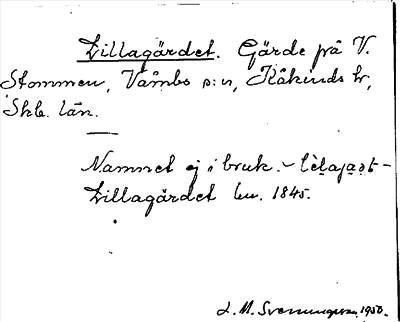 Lillagärdet. Gärde på V.
Stommen, Våmbs s:n, Kåkinds hd,
Skb. län.
Namnet ej i bruk. –
Lillagärdet hu. 1845.
L. M. Svenungsson, 1950.